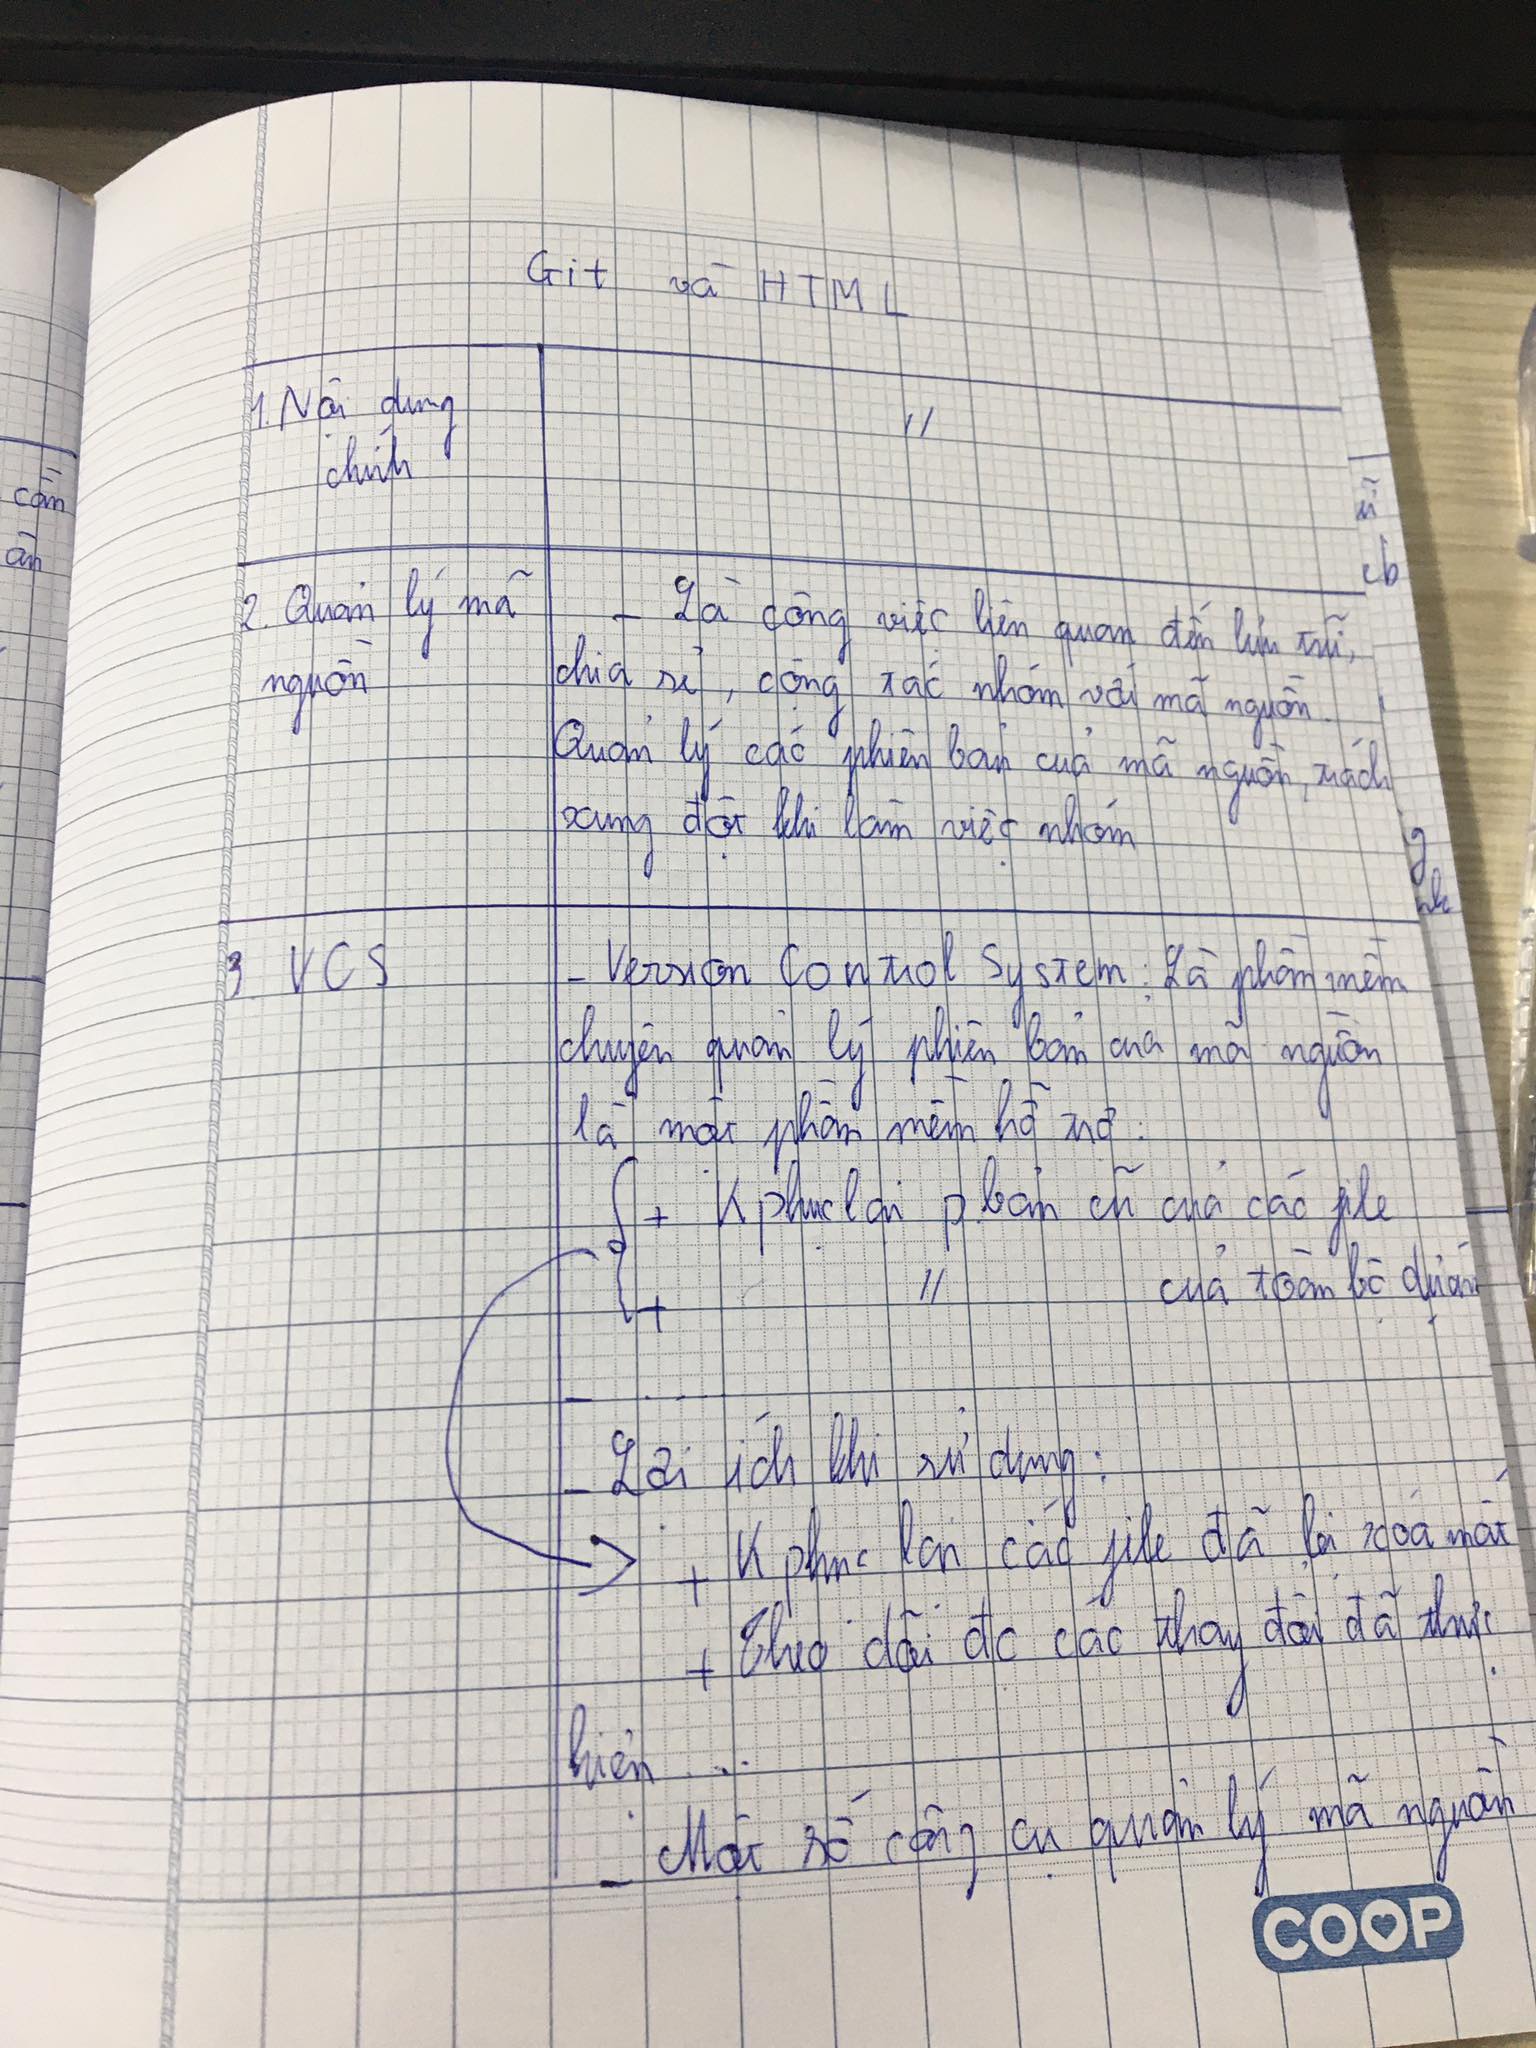 Git và HTML
1. Nội dung
chính
"
2. Quản lý mã
nguồn
- Là công việc liên quan đến lưu trữ,
chia sẻ, cộng tác nhóm với mã nguồn.
Quản lý các phiên bản của mã nguồn, trách
xung đột khi làm việc nhóm
3. VCS
- Version Control System: Là phần mềm
chuyên quản lý phiên bản của mã nguồn
là một phần mềm hỗ trợ:
+ Kphục lại p.bản cũ của các file
+ " của toàn bộ dự án
- ....
- Lợi ích khi sử dụng:
+ Kphục lại các file đã bị xoá mất
+ Theo dõi đc các thay đổi đã thực
hiện ...
- Một số công cụ quản lý mã nguồn
COOP
cần
ần